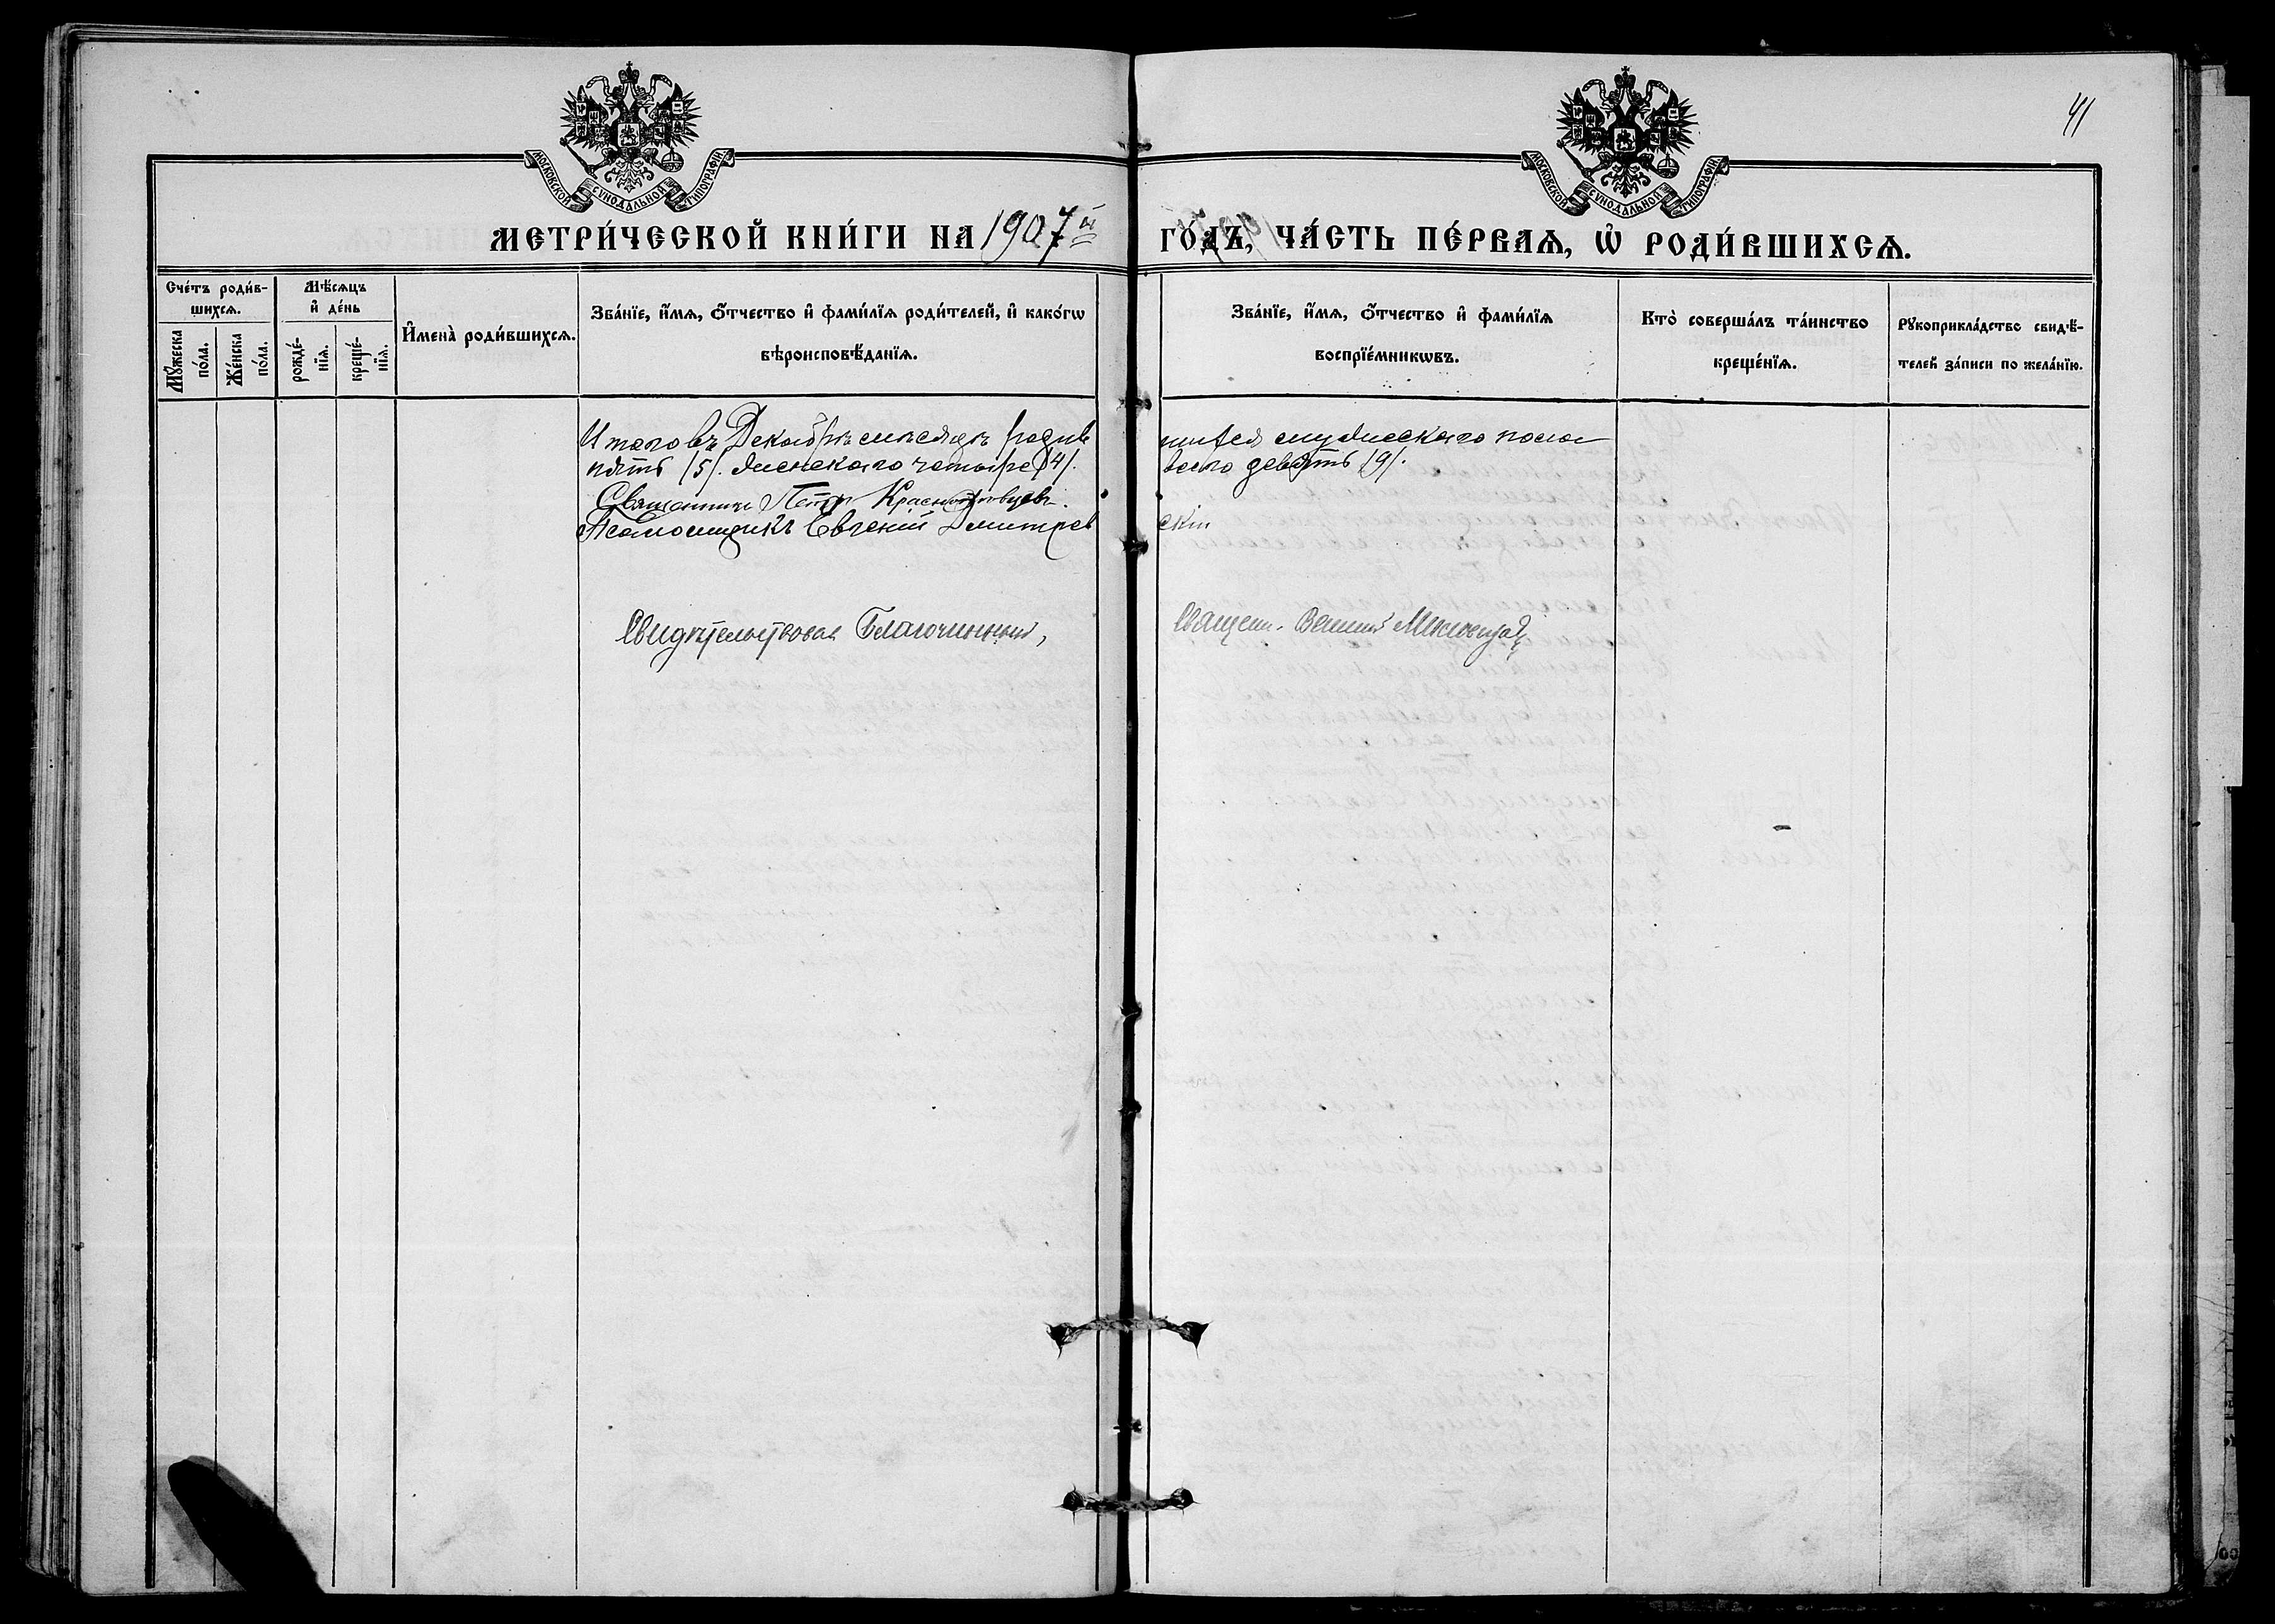 41
МОСКОВСКОЙ СѴНОДАЛЬНОЙ ТИПОГРАФІИ.
МОСКОВСКОЙ СѴНОДАЛЬНОЙ ТИПОГРАФІИ.
МЕТРИ́ЧЕСКОЙ КНИ́ГИ НА 1907й ГО́ДЪ, ЧА́СТЬ ПЕ́РВАѦ, Ѽ РОДИ́ВШИХСѦ.
Сче́тъ роди́в-
шихсѧ.
Мꙋ́жеска
по́ла.
Же́нска
по́ла.
Мѣ́сѧцъ
и҆ де́нь
рожде́-
нїѧ.
креще́-
нїѧ.
И҆мена̀ роди́вшихсѧ.
Зва́нїе, и҆́мѧ, ѻ҆́тчество и҆ фами́лїѧ роди́телей, и҆ како́гѡ
вѣроисповѣ́данїѧ.
Зва́нїе, и҆́мѧ, ѻ҆́тчество и҆ фами́лїѧ
воспрїе́мникѡвъ.
Кто̀ соверша́лъ та́инство
креще́нїѧ.
Рꙋкоприкла́дство свидѣ́-
телей за́писи по жела́нїю.
Итого въ Декабрѣ мѣсяцѣ родив шихся мужескаго пола
пять /5/. женскаго четыре /4/. всего девять /9/.
Священникъ Петръ
Псаломщикъ Евгений Дмитрев скій
Свидѣтельствовал Благочинный, Священ.